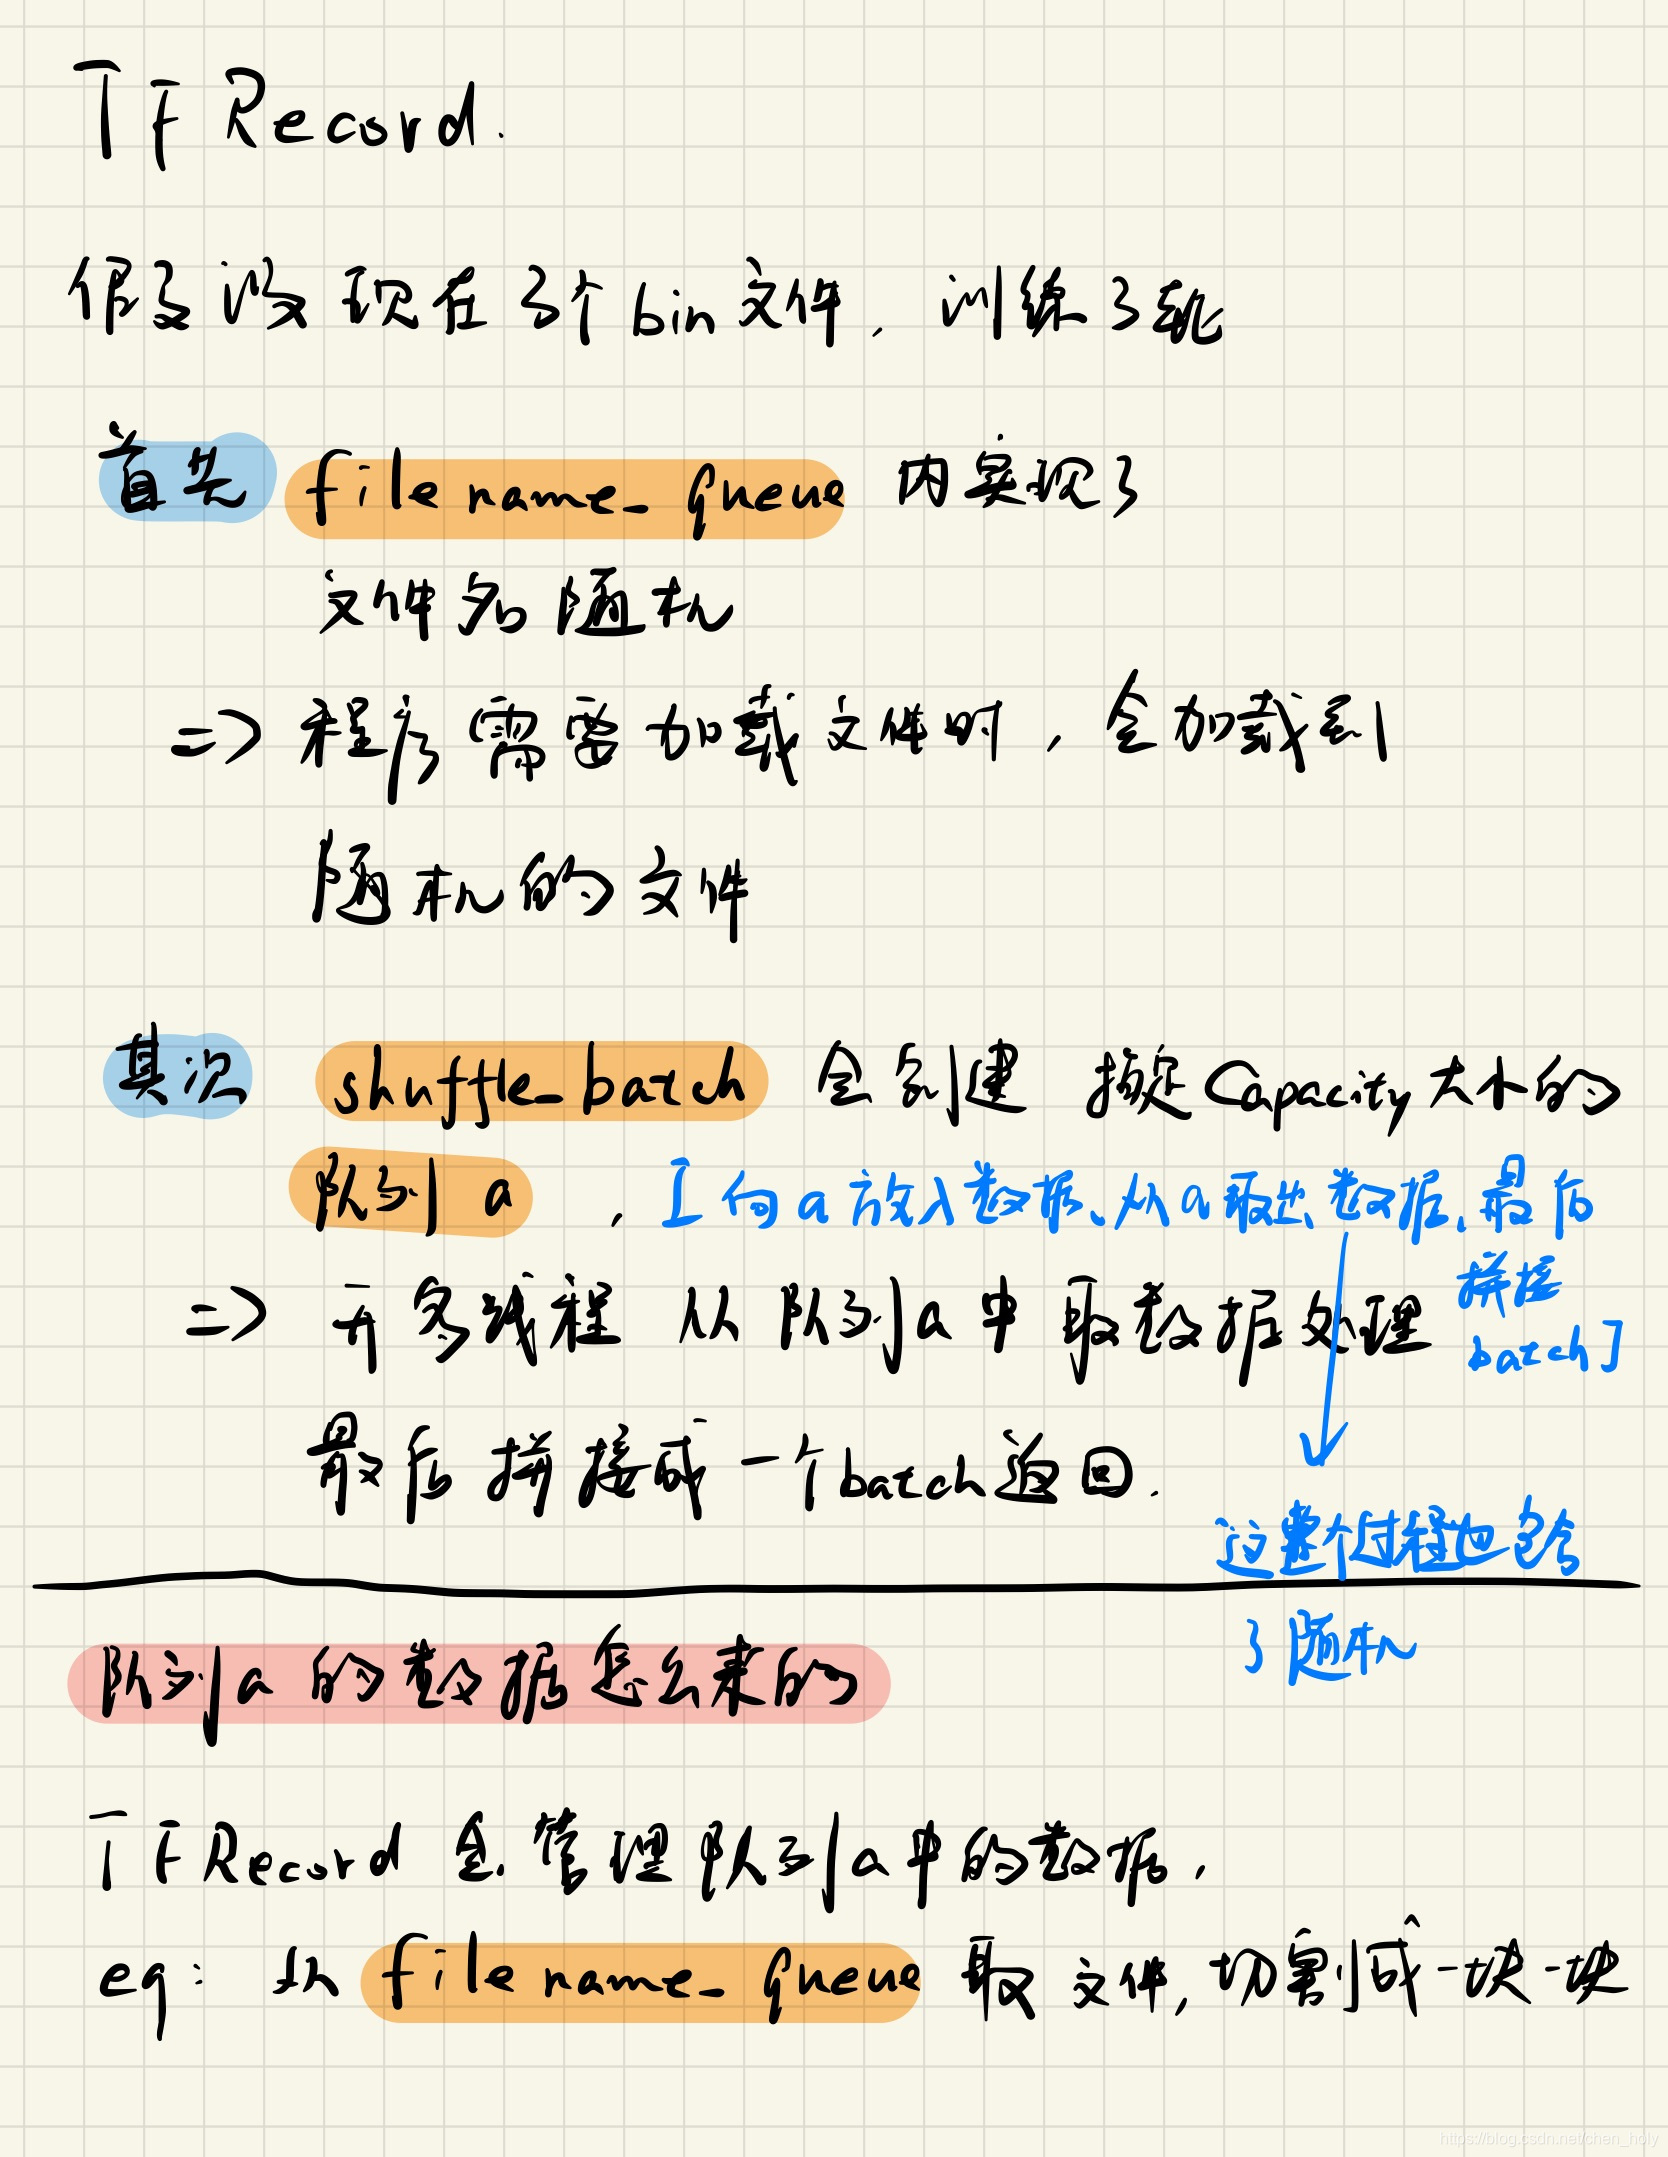 TFRecord.
假设现在3个bin文件，训练3轮
首先 filename_queue 内实现了
文件名随机
=> 程序需要加载文件时，会加载到
随机的文件
其次 shuffle_batch 会创建 指定Capacity大小的
队列a ，[向a放入数据、从a取出数据,最后
拼接
batch]
=> 开多线程 从队列a中取数据处理
最后拼接成一个batch返回.
这整个过程也包含
了随机
队列a的数据怎么来的
TFRecord会管理队列a中的数据，
eg: 从 filename_queue 取文件,切割成一块一块
https://blog.csdn.net/chen_holy